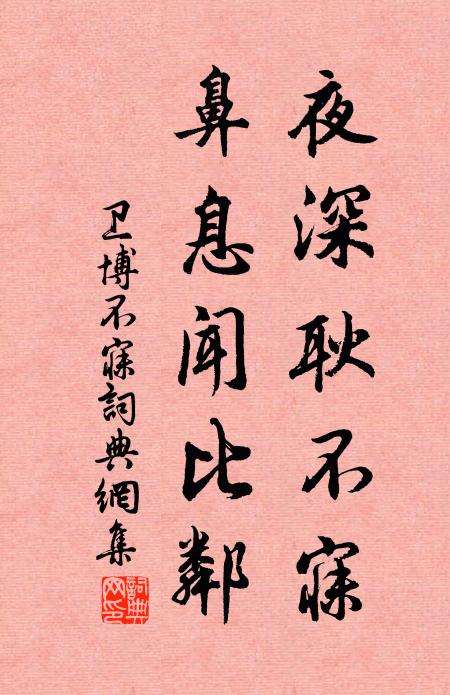 夜深耿不寐
鼻息闻比鄰
卫博不寐詞典網集
詞典网印